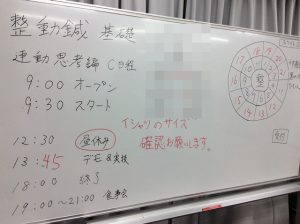 整動鍼 基礎
運動思考編 C日程
9:00 オープン
9:30 スタート
12:30 昼休み
13:45 デモ&実技
18:00 終了
19:00~21:00 食事会
Tシャツのサイズ
確認お願いします。
整